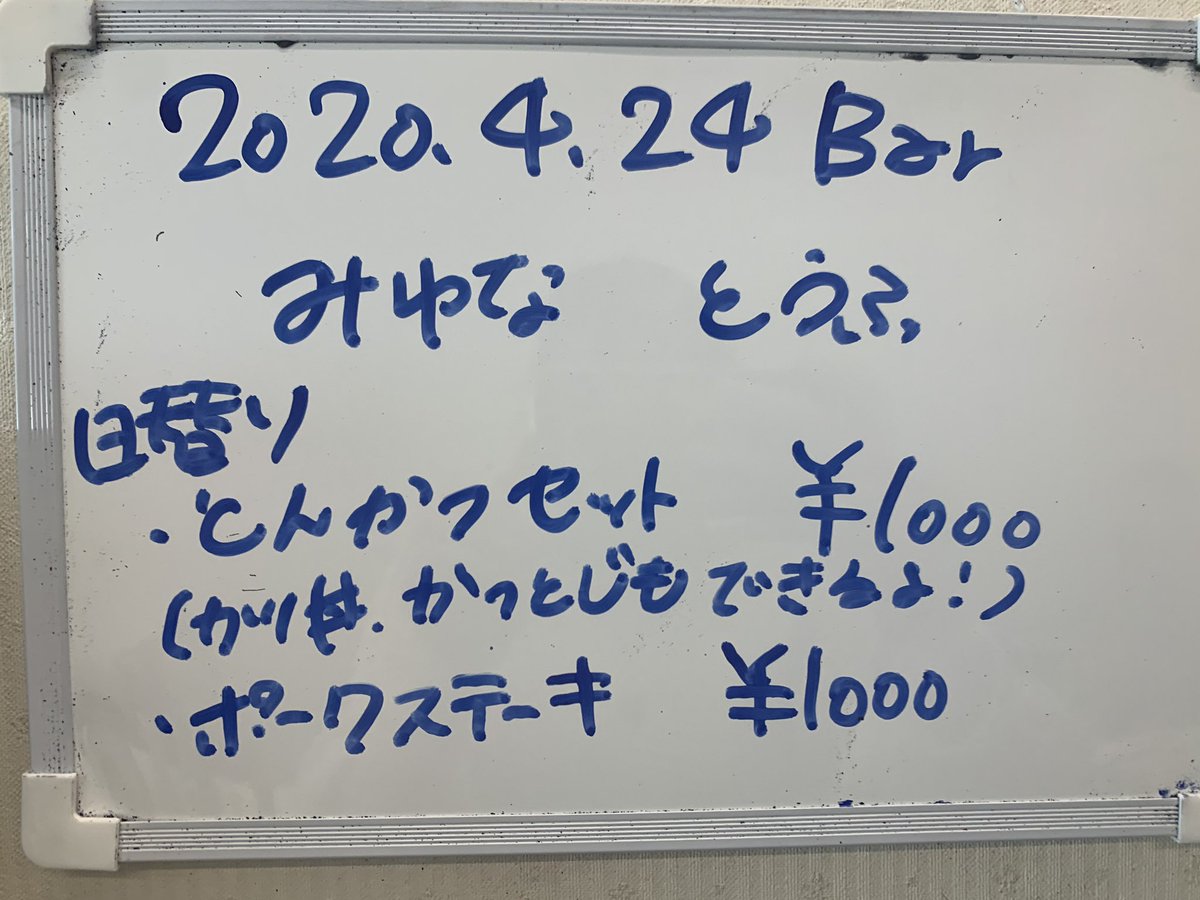 2020.4.24 Bar
みゆな とうふ
日替り
・とんかつセット ¥1000
(カツ丼.かつとじもできるよ!)
・ポークステーキ ¥1000